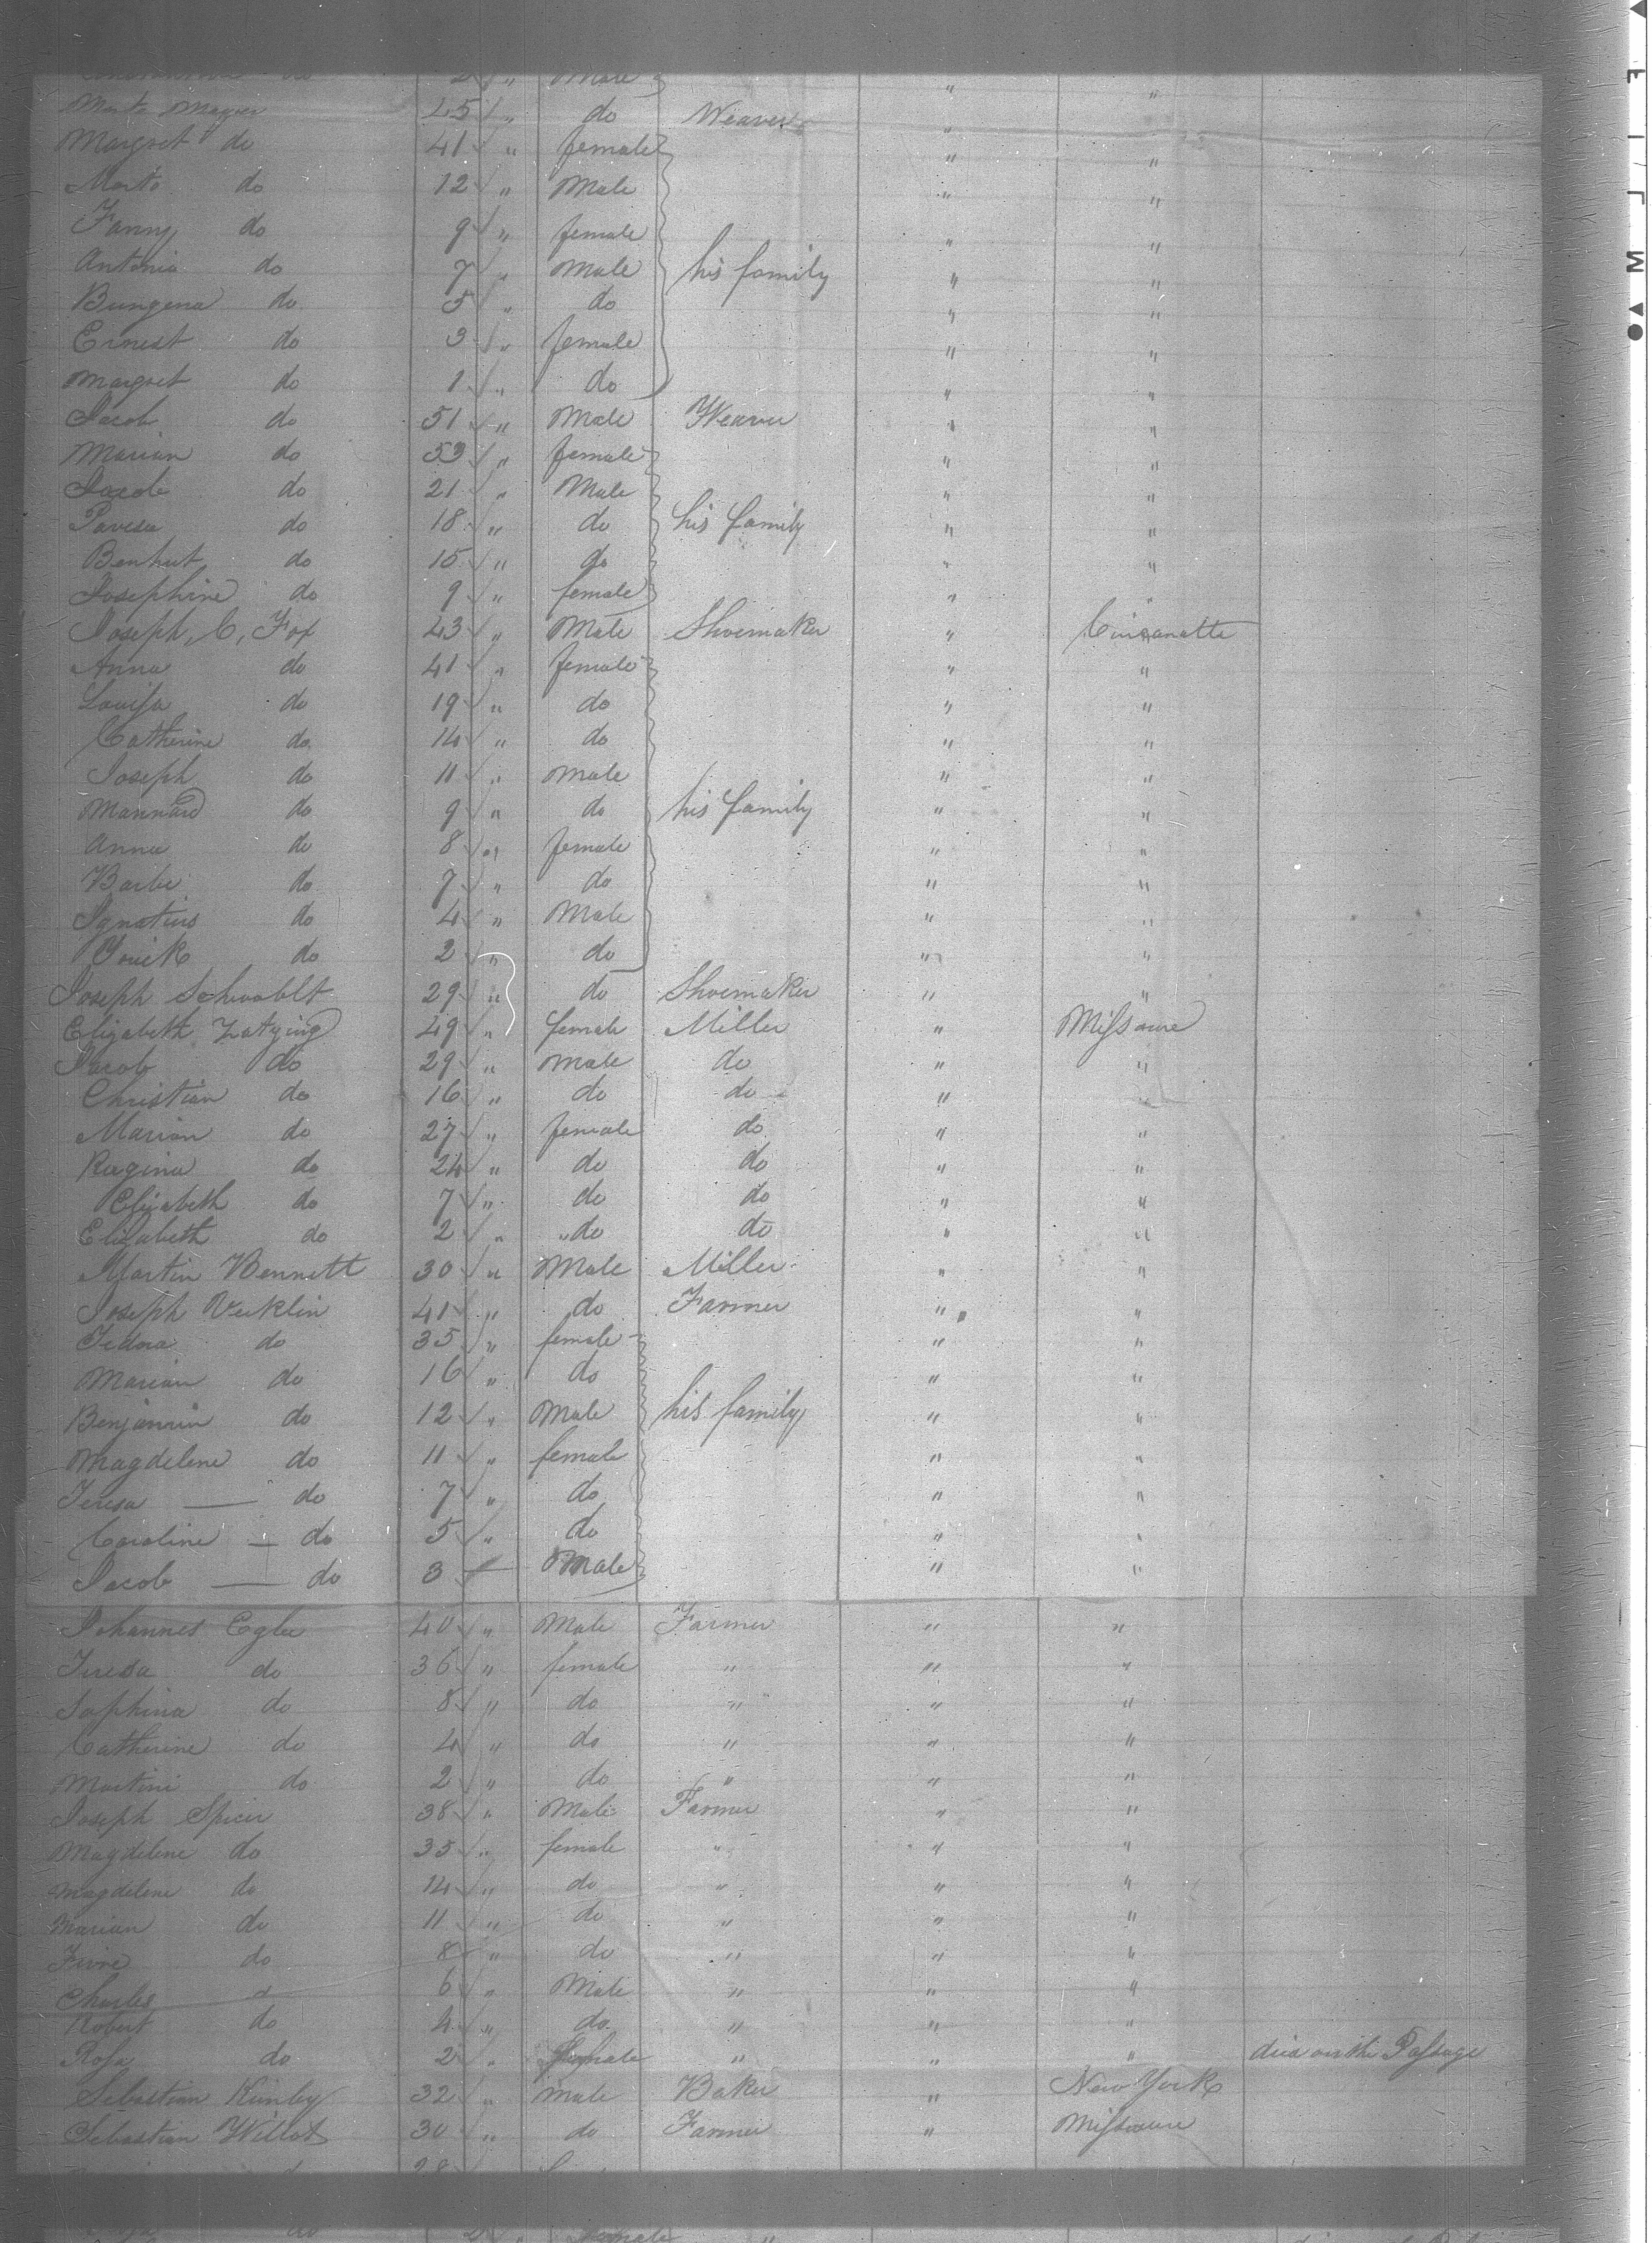 2 " Male " "
Marto Mayer 45 " do Weaver "
Margret do 41 " female " "
Marto do 12 " Male " "
Fanny do 9 " female " "
Antonia do 7 " Male his family " "
Bungena do 5 " do " "
Ernest do 3 " female " "
Margret do 1 " do " "
Jacob do 51 " Male Weaver " "
Marian do 53 " female " "
Jacob do 21 " Male " "
Pavesa do 18 " do his family " "
Benhut do 15 " do " "
Josephine do 9 " female " "
Joseph, C, Fox 43 " Male Shoemaker " Cincanatte
Anna do 41 " female " "
Louisa do 19 " do " "
Catherine do 14 " do " "
Joseph do 11 " male " "
Mannard do 9 " do his family " "
Anna do 8 " female " "
Barbe do 7 " do " "
Ignatius do 4 " Male " "
do 2 " do " "
Joseph Schwablt 29 " do Shoemaker " "
Elizabeth Zatying 49 " female Miller " Missoure
Jacob do 29 " Male do " "
Christian do 16 " do do " "
Marian do 27 " female do " "
Ragina do 24 " do do " "
Elizabeth do 7 " do do " "
Elizabeth do 2 " do do " "
Martin Bennett 30 " Male Miller " "
Joseph Vecklin 41 " do Farmer " "
Fedora do 35 " female " "
Marian do 16 " do " "
Benjamin do 12 " Male his family " "
Magdelene do 11 " female " "
Teresa — do 7 " do " "
Caroline — do 5 " do " "
Jacob — do 3 Male " "
Johannes Eglee 40 " Male Farmer " "
Teresa do 36 " female " " "
Saphina do 8 " do " " "
Catherine do 4 " do " " "
Martini do 2 " do " " "
Joseph Spicer 38 " Male Farmer " "
Magdelene do 35 " female " " "
Magdelene do 14 " do " " "
Marian do 11 " do " " "
do 8 " do " " "
Charles d 6 " Male " " "
Robert do 4 " do " " "
Rosa do 2 " female " " " died on the Passage
Sebastian Kimby 32 " male Baker " New York
Sebastian Willot 30 " do Farmer " Missoure
28